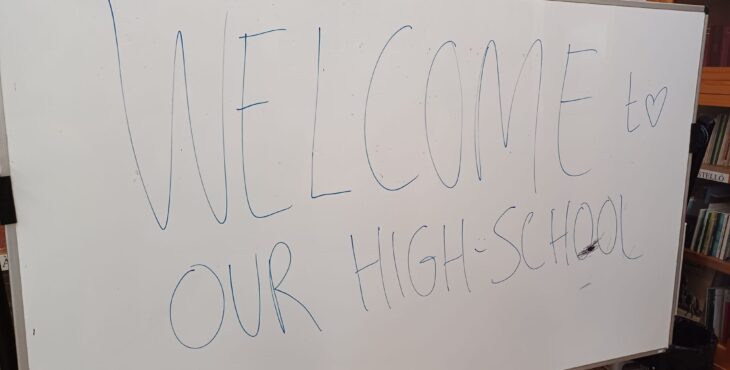 WELCOME t♡
OUR HIGH-SCHOOL
TELLÓ